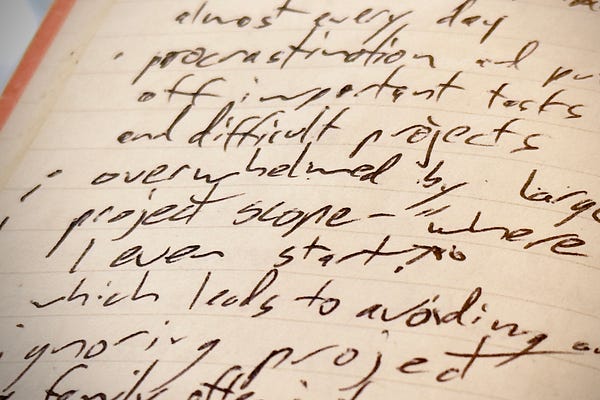 almost every day
procrastination and pu
off important tasks
and difficult projects
overwhelmed by large
project scope - "where
I even start?"
which leads to avoiding
ignoring project
family